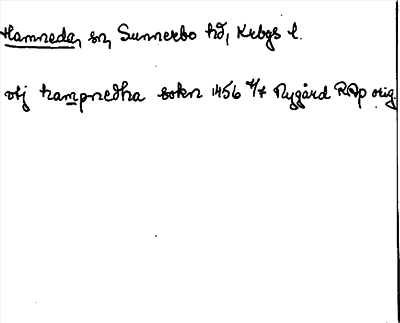 Hamneda, sn, Sunnerbo hd, Krbgs l.
vtj hampnedha sokn 1456 4/7 Nygård RAp orig